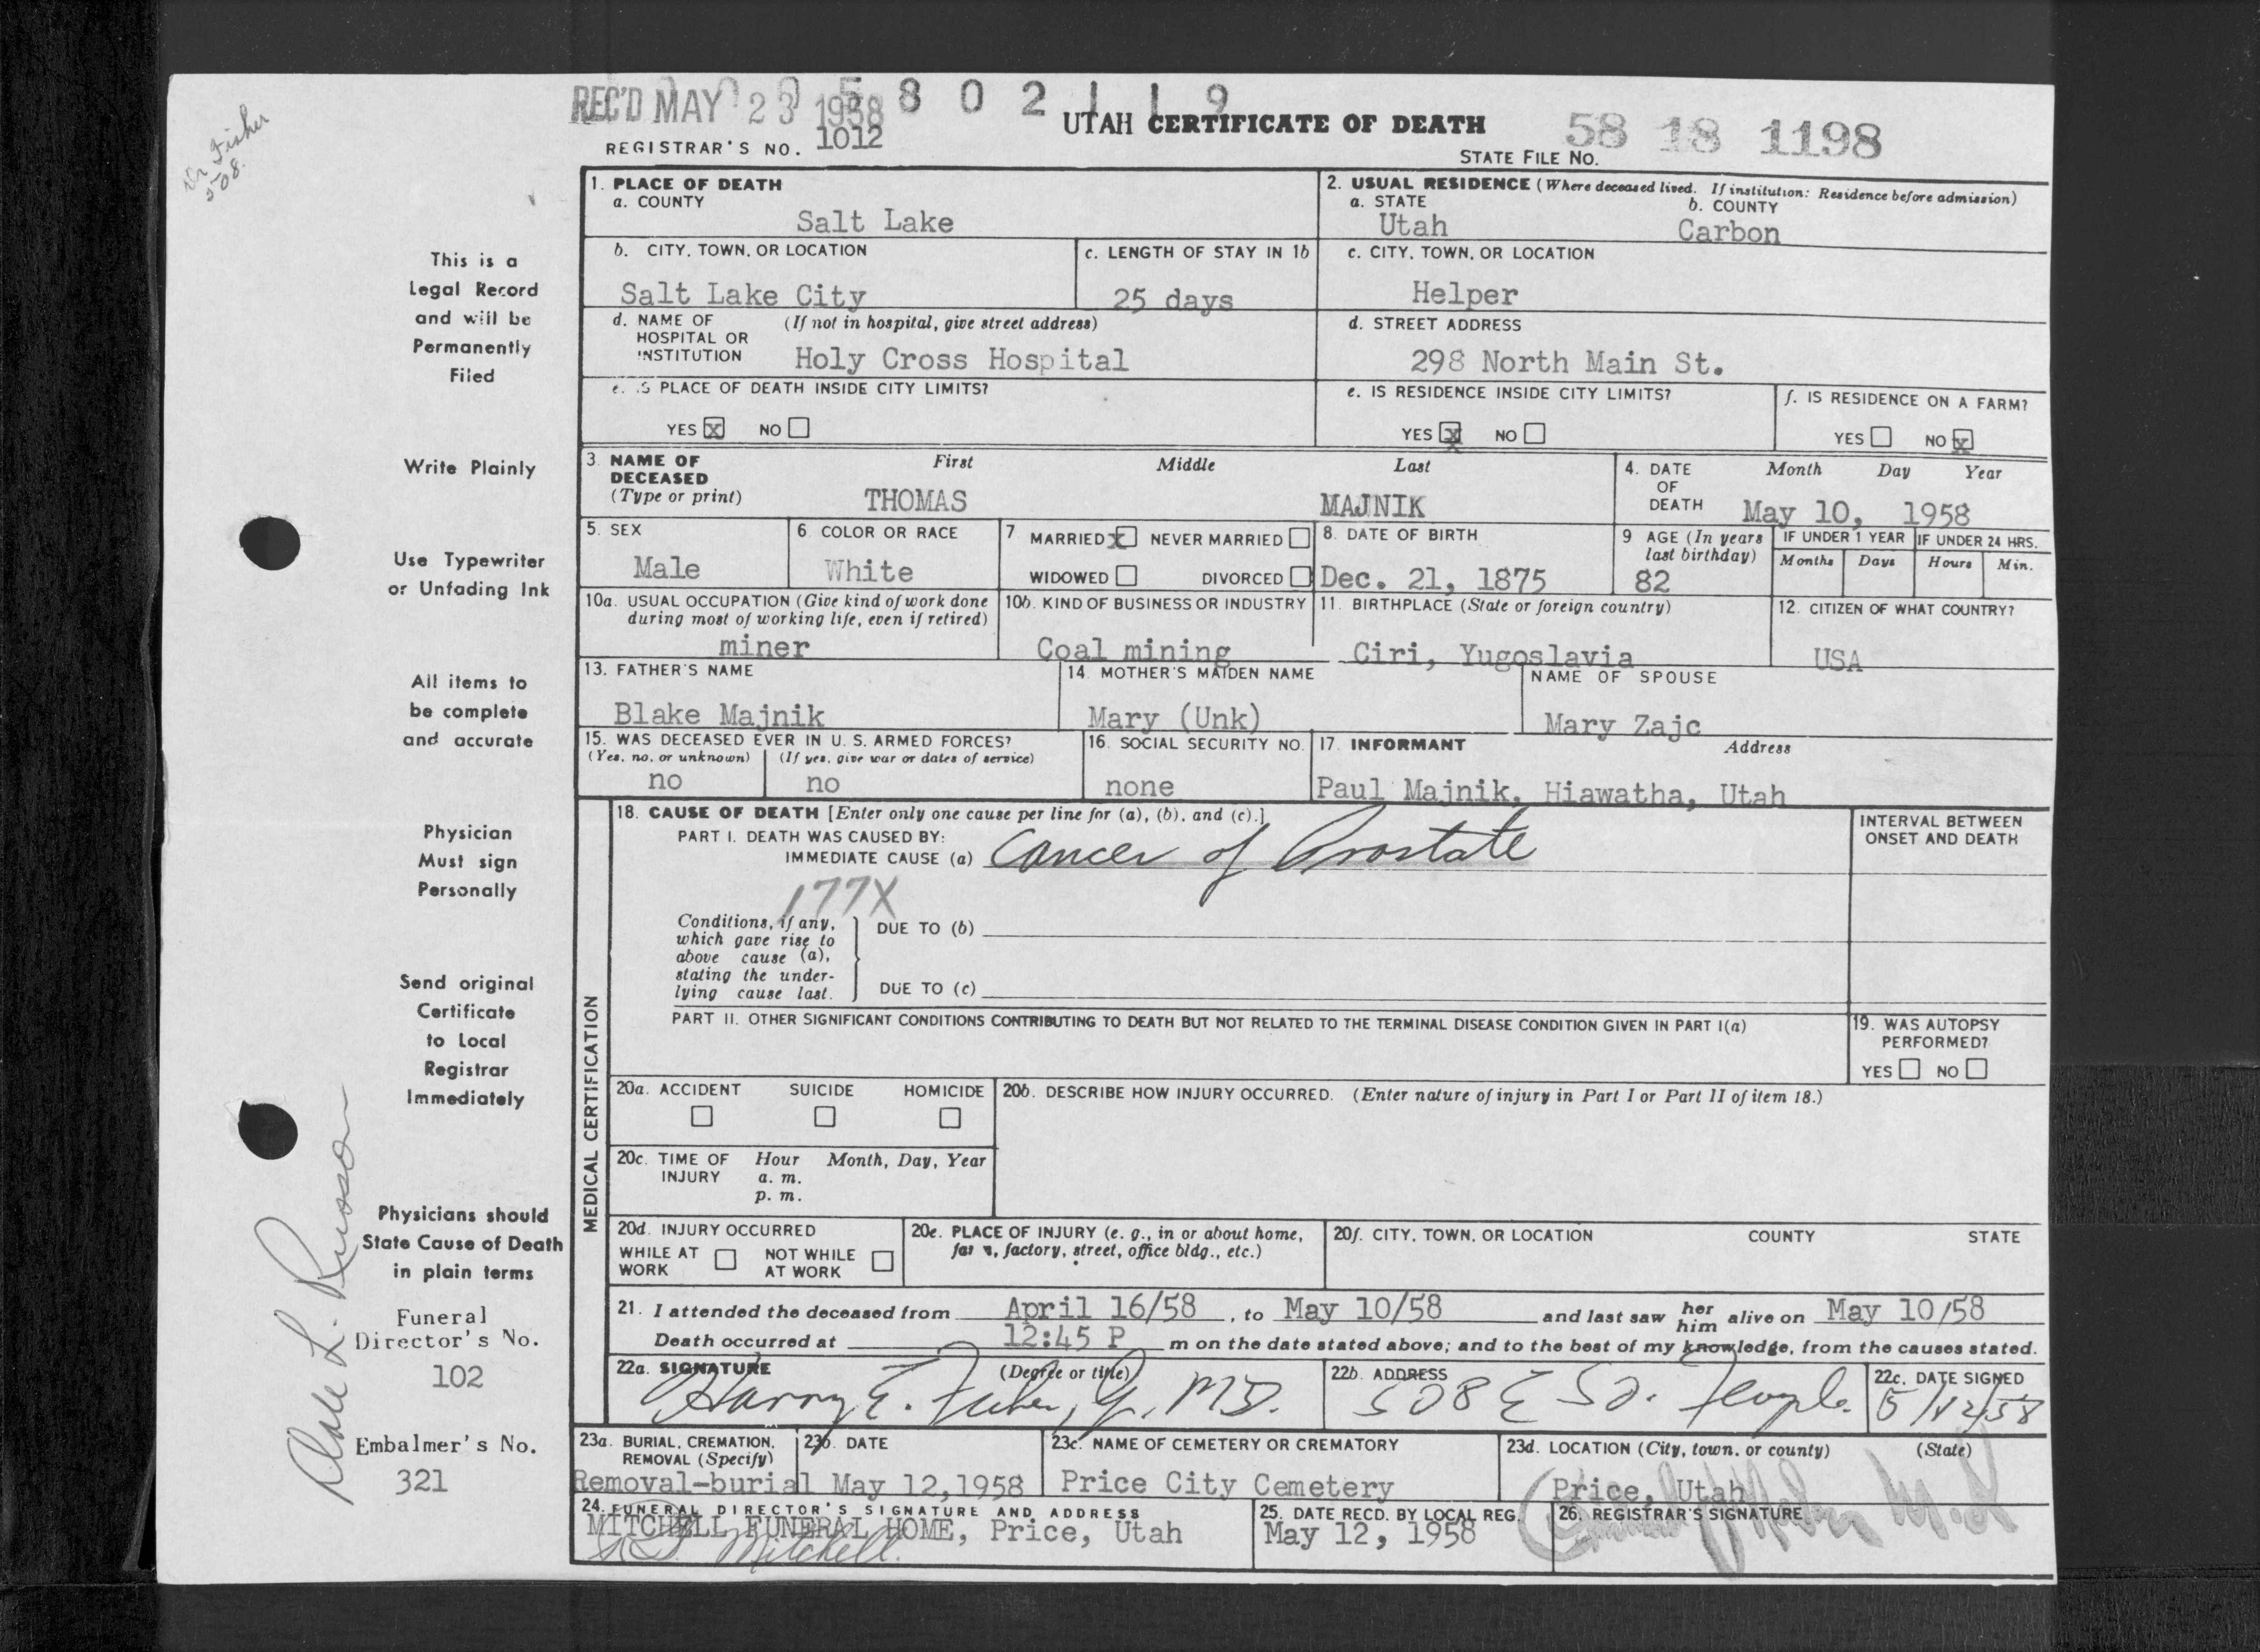 Dr Fisher
508.
REC'D MAY 23 1958
58 0 2 1 1 9
REGISTRAR'S NO. 1012
UTAH CERTIFICATE OF DEATH
STATE FILE NO. 58 18 1198
This is a
Legal Record
and will be
Permanently
Filed
Write Plainly
Use Typewriter
or Unfading Ink
All items to
be complete
and accurate
Physician
Must sign
Personally
Send original
Certificate
to Local
Registrar
Immediately
Physicians should
State Cause of Death
in plain terms
Funeral
Director's No.
102
Embalmer's No.
321
Dale L.
1. PLACE OF DEATH
a. COUNTY
Salt Lake
2. USUAL RESIDENCE (Where deceased lived. If institution: Residence before admission)
a. STATE
b. COUNTY
Utah
Carbon
b. CITY, TOWN, OR LOCATION
c. LENGTH OF STAY IN 1b
c. CITY, TOWN, OR LOCATION
Salt Lake City
25 days
Helper
d. NAME OF (If not in hospital, give street address)
HOSPITAL OR
INSTITUTION
Holy Cross Hospital
d. STREET ADDRESS
298 North Main St.
e. IS PLACE OF DEATH INSIDE CITY LIMITS?
YES X NO
e. IS RESIDENCE INSIDE CITY LIMITS?
YES X NO
f. IS RESIDENCE ON A FARM?
YES NO X
3. NAME OF
DECEASED
(Type or print)
First Middle Last
THOMAS MAJNIK
4. DATE
OF
DEATH
Month Day Year
May 10, 1958
5. SEX
Male
6. COLOR OR RACE
White
7 MARRIED X NEVER MARRIED
WIDOWED DIVORCED
8. DATE OF BIRTH
Dec. 21, 1875
9 AGE (In years
last birthday)
82
IF UNDER 1 YEAR
Months Days
IF UNDER 24 HRS.
Hours Min.
10a. USUAL OCCUPATION (Give kind of work done
during most of working life, even if retired)
miner
10b. KIND OF BUSINESS OR INDUSTRY
Coal mining
11. BIRTHPLACE (State or foreign country)
Ciri, Yugoslavia
12. CITIZEN OF WHAT COUNTRY?
USA
13. FATHER'S NAME
Blake Majnik
14. MOTHER'S MAIDEN NAME
Mary (Unk)
NAME OF SPOUSE
Mary Zajc
15. WAS DECEASED EVER IN U. S. ARMED FORCES?
(Yes, no, or unknown) (If yes, give war or dates of service)
no no
16. SOCIAL SECURITY NO.
none
17. INFORMANT Address
Paul Majnik, Hiawatha, Utah
MEDICAL CERTIFICATION
18. CAUSE OF DEATH [Enter only one cause per line for (a), (b), and (c).]
PART I. DEATH WAS CAUSED BY:
IMMEDIATE CAUSE (a) Cancer of Prostate
INTERVAL BETWEEN
ONSET AND DEATH
177X
Conditions, if any,
which gave rise to
above cause (a),
stating the under-
lying cause last.
DUE TO (b)
DUE TO (c)
PART II. OTHER SIGNIFICANT CONDITIONS CONTRIBUTING TO DEATH BUT NOT RELATED TO THE TERMINAL DISEASE CONDITION GIVEN IN PART I(a)
19. WAS AUTOPSY
PERFORMED?
YES NO
20a. ACCIDENT SUICIDE HOMICIDE
20b. DESCRIBE HOW INJURY OCCURRED. (Enter nature of injury in Part I or Part II of item 18.)
20c. TIME OF Hour Month, Day, Year
INJURY a. m.
p. m.
20d. INJURY OCCURRED
WHILE AT
WORK
NOT WHILE
AT WORK
20e. PLACE OF INJURY (e. g., in or about home,
farm, factory, street, office bldg., etc.)
20f. CITY, TOWN, OR LOCATION COUNTY STATE
21. I attended the deceased from April 16/58, to May 10/58 and last saw her him alive on May 10/58
Death occurred at 12:45 P m on the date stated above; and to the best of my knowledge, from the causes stated.
22a. SIGNATURE (Degree or title)
Harry E. Fisher, Jr. MD.
22b. ADDRESS
508 E So. Temple
22c. DATE SIGNED
5/12/58
23a. BURIAL, CREMATION,
REMOVAL (Specify)
Removal-burial
23b. DATE
May 12,1958
23c. NAME OF CEMETERY OR CREMATORY
Price City Cemetery
23d. LOCATION (City, town, or county) (State)
Price, Utah
24. FUNERAL DIRECTOR'S SIGNATURE AND ADDRESS
MITCHELL FUNERAL HOME, Price, Utah
Mitchell
25. DATE RECD. BY LOCAL REG.
May 12, 1958
26. REGISTRAR'S SIGNATURE